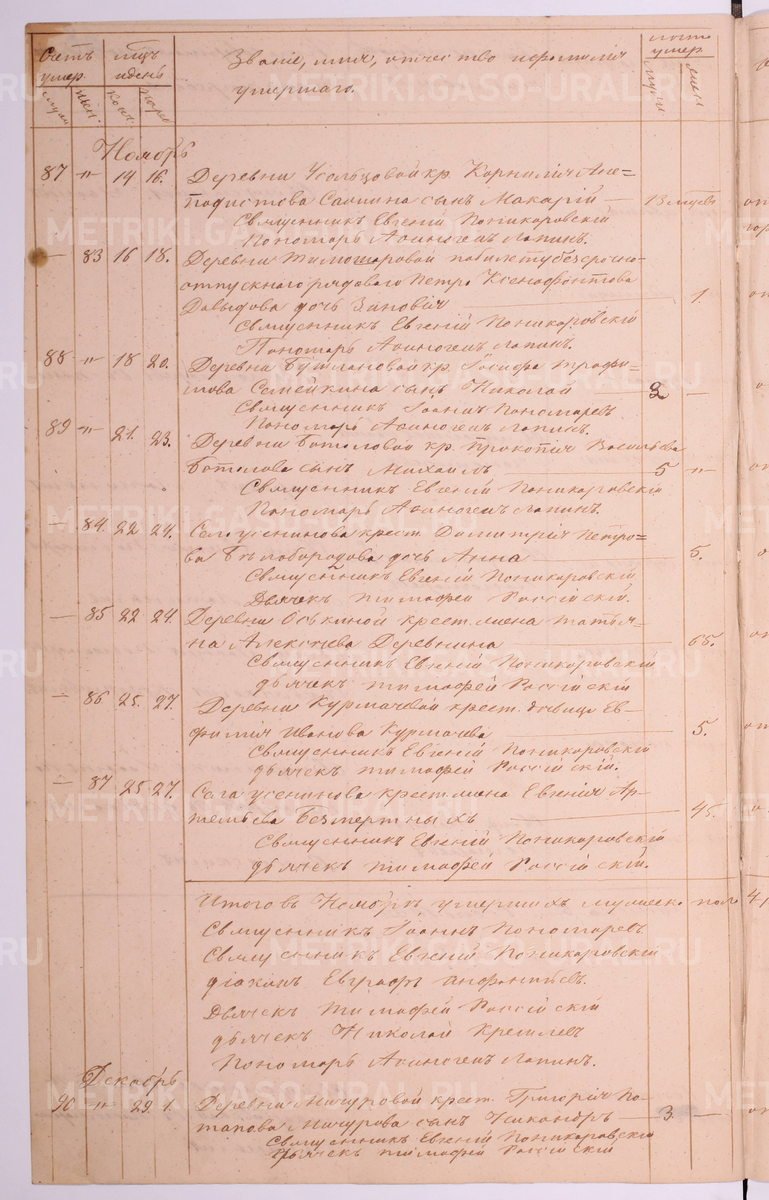 Счетъ умер.
мцъ и день
Званіе, имя, отчество и фамилія
умершаго.
лѣта умер.
муж.
жен.
Ноябрь
87 " 14 16. Деревни Усольцовой кр. Корнилія Ане-
подистова сынъ Макарій
Священникъ Евгеній Поникаровскій
Пономарь Аѳиногенъ Лапинъ.
— 83 16 18. Деревни Тимошаровой по билету безсрочно-
отпускнаго рядоваго Петра Ксенофонтова
Давыдова дочь Зиновія — 1.
Священникъ Евгеній Поникаровскій
Пономарь Аѳиногенъ Лапинъ.
88 " 18 20. Деревни Бушлановой кр. Іосифа Трофи-
мова Семейкина сынъ Николай —
Священникъ Іоаннъ Пономаревъ
Пономарь Аѳиногенъ Лапинъ.
89 " 21. 23. Деревни Ботоловой кр. Прокопія Васильева
Ботолова сынъ Михаилъ — 5 "
Священникъ Евгеній Поникаровскій
Пономарь Аѳиногенъ Лапинъ.
— 84. 22 24. крест. Димитрія Петро-
ва Бѣлобородова дочь Анна — 5.
Священникъ Евгеній Поникаровскій
Дьячекъ Тимофей Россійскій.
— 85 22 24. Деревни Оськиной крест. жена Татья-
на Алексѣева Деревнина — 65.
Священникъ Евгеній Поникаровскій
дьячекъ Тимофей Россійскій
— 86 25. 27. Деревни Курмачевой крест. дѣвица Ев-
фимія Иванова Курмачева — 5.
Священникъ Евгеній Поникаровскій
дьячекъ Тимофей Россійскій.
— 87 25 27. Села Усенинова крест. жена Евгенія Ар-
темьева Безмертныхъ — 45.
Священникъ Евгеній Поникаровскій
дьячекъ Тимофей Россійскій.
Итого въ Ноябрѣ умершихъ мужеска пола
Священникъ Іоаннъ Пономаревъ
Священникъ Евгеній Поникаровскій
діаконъ Евграфъ
Дьячекъ Тимофей Россійскій
дьячекъ Николай
Пономарь Аѳиногенъ Лапинъ.
Декабрь
90 " 29. 1. Деревни Мичуровой крест. Григорія По-
тапова Мичурова сынъ Никандръ — 3. —
Священникъ Евгеній Поникаровскій
дьячекъ Тимофей Россійскій
METRIKI.GASO-URAL.RU